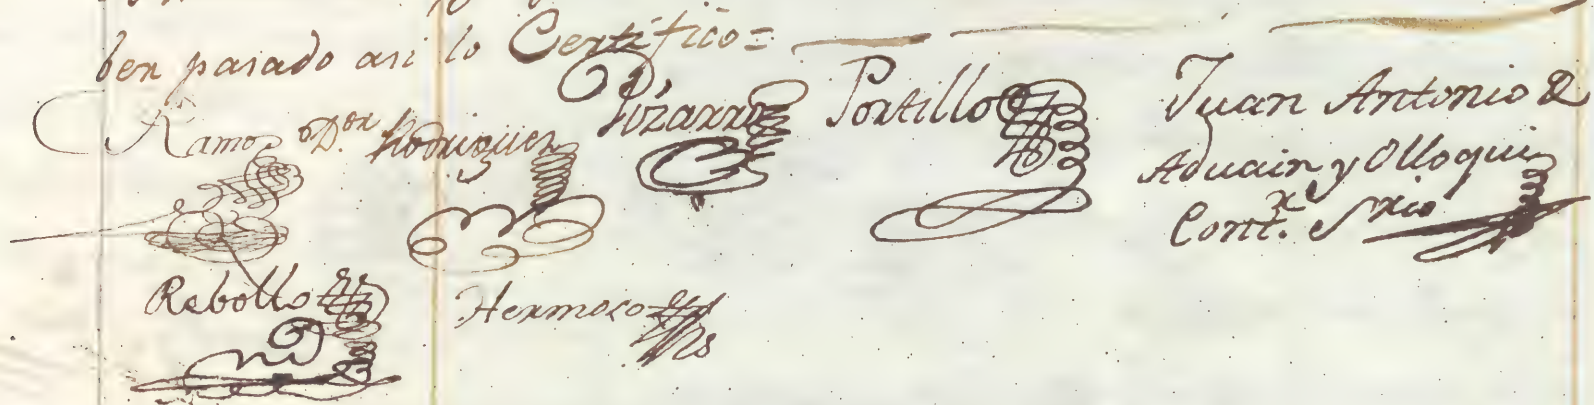 ben pasado asi lo Certifico=
Ramos Dor. Rodriguez Pizarro Portillo Juan Antonio de
Aduain y Olloqui
Contr. Srio
Rebollo Hermoso